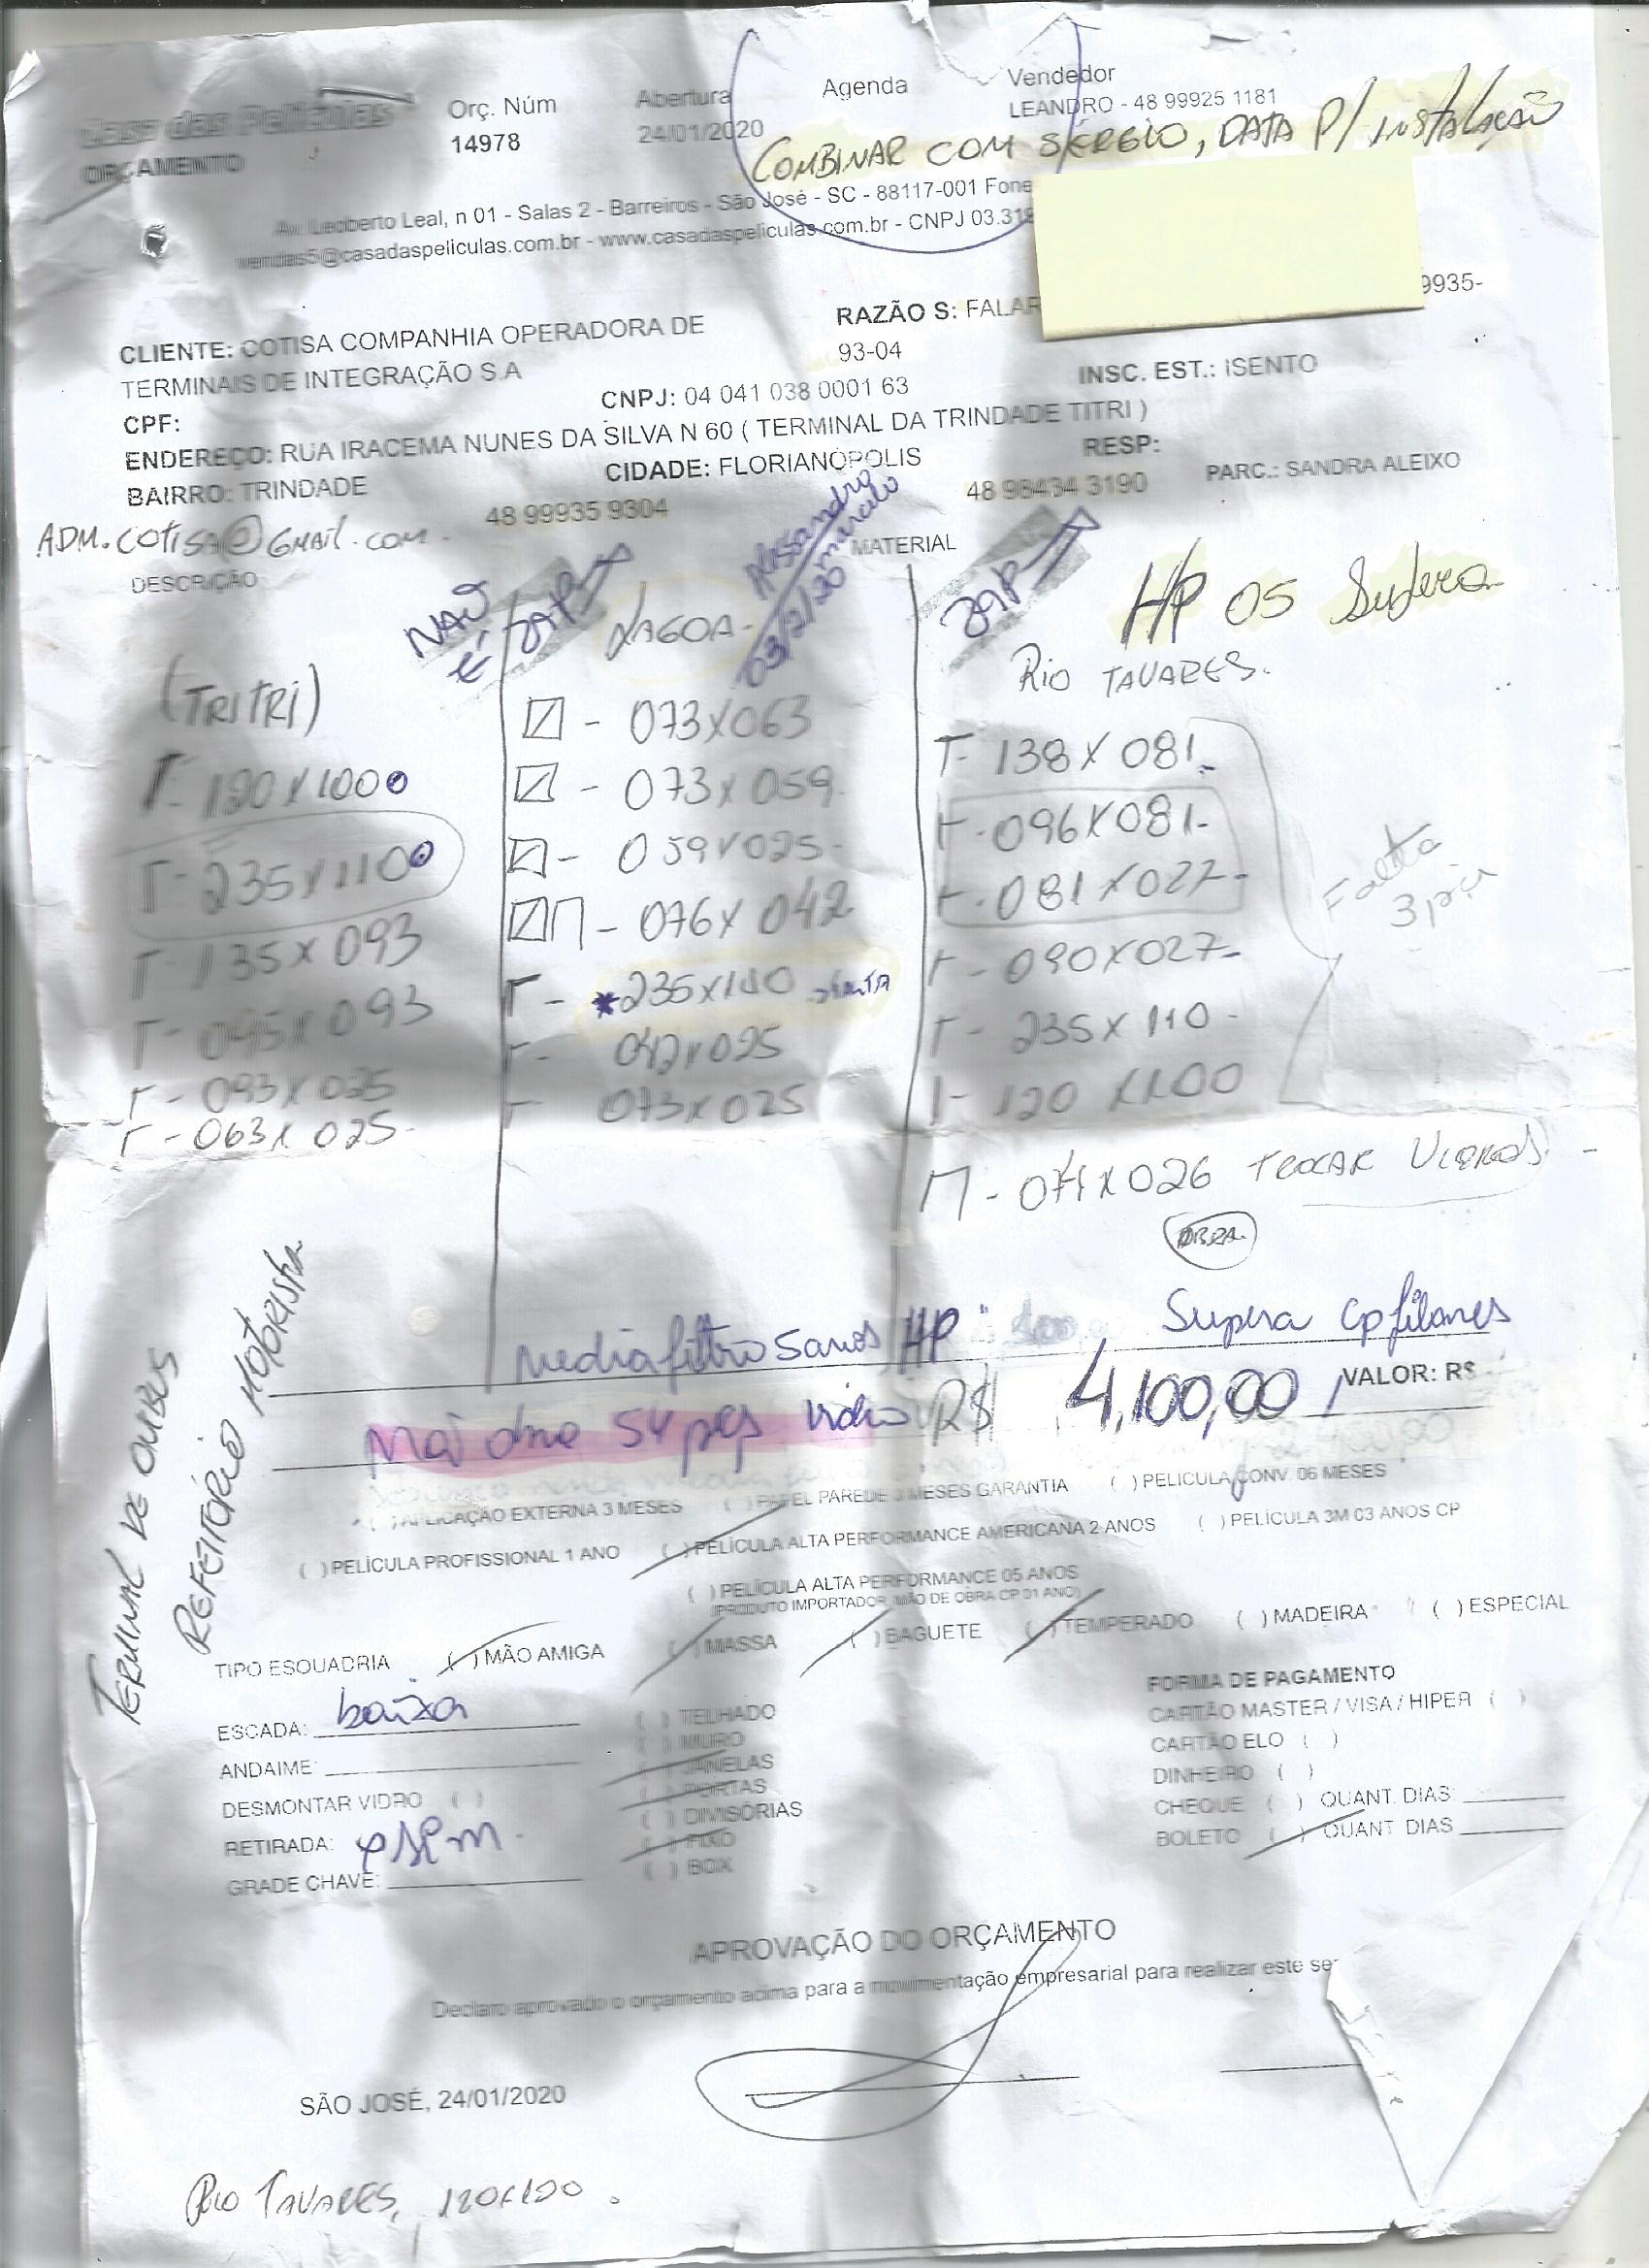 Casa das Películas
ORÇAMENTO
Orç. Núm
14978
Abertura
24/01/2020
Agenda
Vendedor
LEANDRO - 48 99925 1181
COMBINAR COM SÉRGIO, DATA P/ INSTALAÇÃO
Av. Leoberto Leal, n 01 - Salas 2 - Barreiros - São José - SC - 88117-001 Fone
vendas5@casadaspeliculas.com.br - www.casadaspeliculas.com.br - CNPJ 03.318
CLIENTE: COTISA COMPANHIA OPERADORA DE
TERMINAIS DE INTEGRAÇÃO S.A
RAZÃO S: FALAR
9935-
93-04
CPF:
CNPJ: 04 041 038 0001 63
INSC. EST.: ISENTO
ENDEREÇO: RUA IRACEMA NUNES DA SILVA N 60 ( TERMINAL DA TRINDADE TITRI )
BAIRRO: TRINDADE
CIDADE: FLORIANÓPOLIS
RESP:
48 99935 9304
48 98434 3190
PARC.: SANDRA ALEIXO
ADM.COTISA@GMAIL.COM.
DESCRIÇÃO
MATERIAL
NÃO
É
03/2/20
HP 05 Supera
(TRITRI)
120 X 100
235 X 110
135 X 093
093 X 025
063 X 025
LAGOA-
- 073 X 063
- 073 X 059
- 059 X 025-
- 076 X 042
* 235 X 110
042 X 025
073 X 025
RIO TAVARES.
138 X 081-
096 X 081-
081 X 027-
090 X 027-
235 X 110-
120 X 100
Falta
3 pçs
- 071 X 026 TROCAR VIDROS
OBRA
TERMINAL DE ONIBUS
REFEITÓRIO MOTORISTA
Media filtro 5 anos HP
Supera
54 pçs vidro R$ 4.100,00
VALOR: R$
( ) APLICAÇÃO EXTERNA 3 MESES
( ) PAPEL PAREDE 3 MESES GARANTIA
( ) PELICULA CONV. 06 MESES
( ) PELÍCULA PROFISSIONAL 1 ANO
( ) PELÍCULA ALTA PERFORMANCE AMERICANA 2 ANOS
( ) PELÍCULA 3M 03 ANOS CP
( ) PELÍCULA ALTA PERFORMANCE 05 ANOS
(PRODUTO IMPORTADOR, MÃO DE OBRA CP 01 ANO)
TIPO ESQUADRIA
( ) MÃO AMIGA
( ) MASSA
( ) BAGUETE
( ) TEMPERADO
( ) MADEIRA
( ) ESPECIAL
ESCADA: baixa
ANDAIME:
DESMONTAR VIDRO ( )
RETIRADA:
GRADE CHAVE:
( ) TELHADO
( ) MURO
( ) JANELAS
( ) PORTAS
( ) DIVISÓRIAS
( ) FIXO
( ) BOX
FORMA DE PAGAMENTO
CARTÃO MASTER / VISA / HIPER ( )
CARTÃO ELO ( )
DINHEIRO ( )
CHEQUE ( ) QUANT. DIAS:
BOLETO ( ) QUANT DIAS
APROVAÇÃO DO ORÇAMENTO
Declaro aprovado o orçamento acima para a movimentação empresarial para realizar este se
SÃO JOSÉ, 24/01/2020
RIO TAVARES, 120X100.